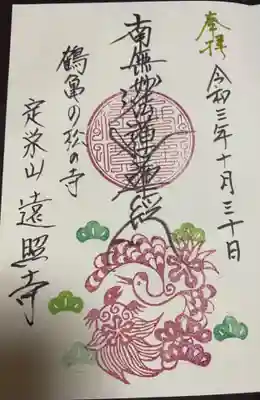 奉拝
令和三年十月三十日
南無妙法蓮華経
鶴亀の松の寺
定栄山 遠照寺